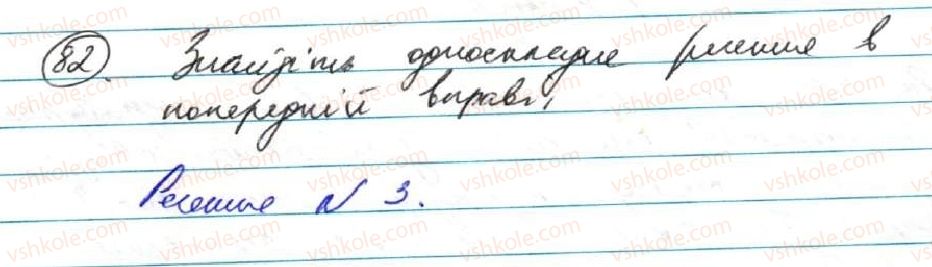 82. Знайдіть односкладне речення в
попередній вправі.
Речення N 3.